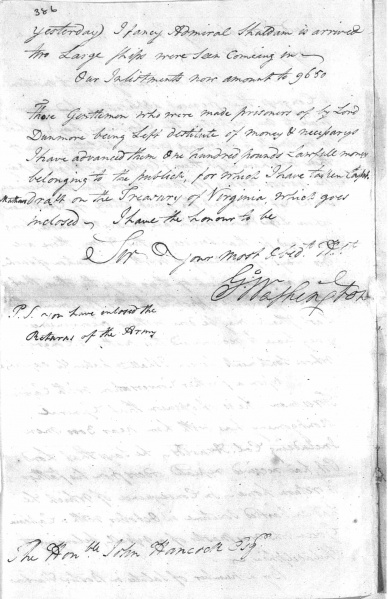 386
Yesterday) I fancy Admiral Shuldam is arrived
two Large ships were seen Comeing in —
Our Inlistments now amount to 9650
Those Gentlemen who were made prisoners of by Lord
Dunmore being Left destitute of money & necessarys
I have advanced them One hundred pounds Lawfull money
belonging to the publick, for which I have taken Captn
Mathews
draft on the Treasury of Virginia, which goes
inclosed — I have the honour to be
Sir
Your most Obedt H. St
Go Washington
P.S. you have enclosed the
Returns of the Army
The Honble John Hancock Esqr